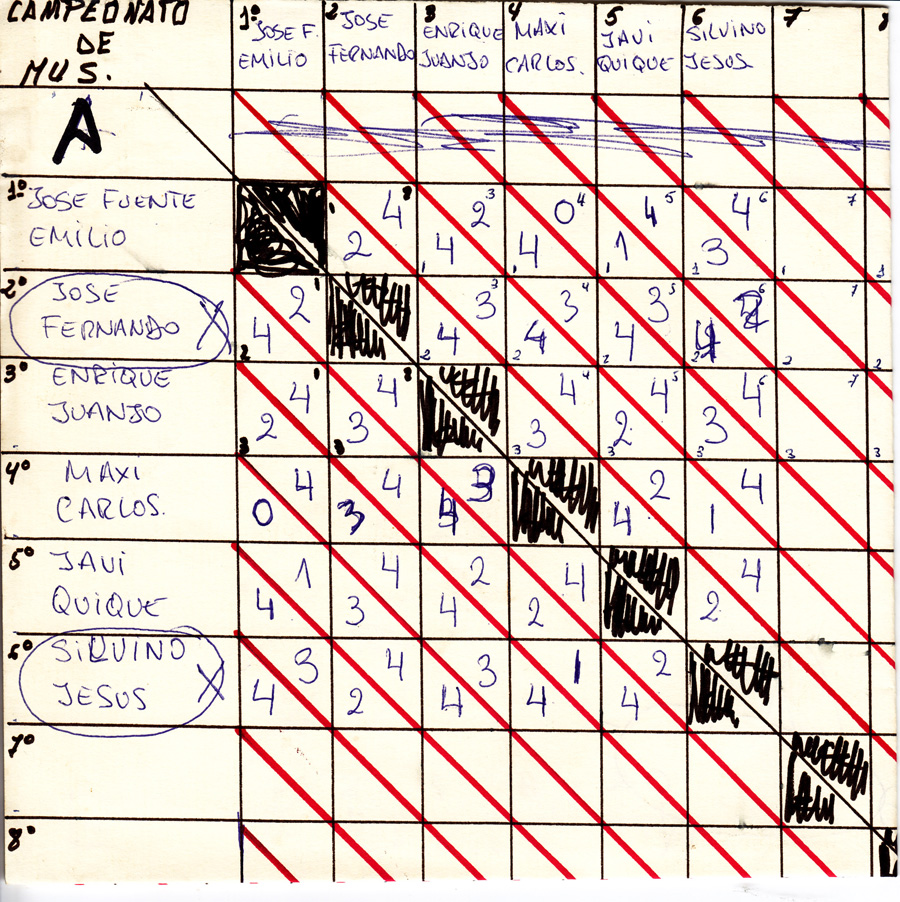 CAMPEONATO
DE
MUS.
A
1º JOSE F. EMILIO
2 JOSE FERNANDO
3 ENRIQUE JUANJO
4 MAXI CARLOS.
5 JAVI QUIQUE
6 SILVINO JESUS
7
8
1º JOSE FUENTE
EMILIO
4 2 0 4 4
2 4 4 1 3
2º JOSE
FERNANDO X
2 3 3 3
4 4 4 4
3º ENRIQUE
JUANJO
4 4 4 4 4
2 3 3 2 3
4º MAXI
CARLOS.
4 4 3 2 4
0 3 4 4 1
5º JAVI
QUIQUE
1 4 2 4 4
4 3 4 2 2
6º SILVINO
JESUS X
3 4 3 1 2
4 2 4 4 4
7º
8º